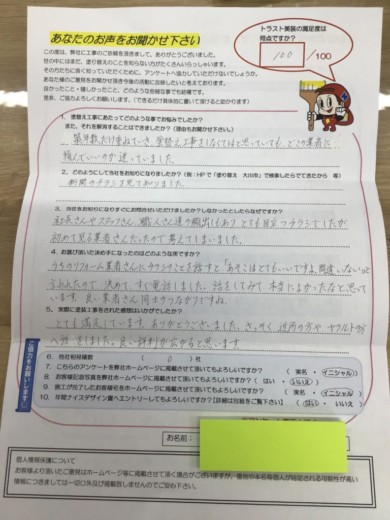 あなたのお声をお聞かせ下さい
トラスト美装の満足度は
何点ですか？
100 /100
この度は、弊社に工事のご依頼を頂きまして、ありがとうございました。
世の中にはまだ、塗り替えのことを知らない方がたくさんいらっしゃいます。
その方たちに良く知っていただくために、アンケートへ協力していただけないでしょうか。
良かったこと・嬉しかったこと、どのような些細な事でも結構です。
是非、ご協力よろしくお願いします。（できるだけ具体的に書いて頂けると助かります）
1．塗替え工事にあたってどのような事でお悩みでしたか？
また、それを解消することはできましたか？（理由もお聞かせ下さい）
築年数だけ重ねていき、塗替え工事をしなくてはと思っていても、どこの業者に
頼んでいいのか迷っていました。
2．どのようにして当社をお知りになりましたか？（例：HPで「塗り替え　大川市」で検索したらでてきたから　等）
新聞のチラシを見て知りました。
3．当社をお知りになりすぐにお問合せいただけましたか？しなかったとしたらなぜですか？
社長さんやスタッフさん、職人さん達の顔出しもあり、とても目立つチラシでしたが
初めて見る業者さんだったので考えてしまいました。
4．お選び頂いた決め手になったのはどのような所ですか？
うちのリフォーム業者さんにチラシのことを話すと「あそこはとてもいいですよ、間違いない」と
言われたので、決めて、すぐ電話しました。話をしてみて本当によかったなと思って
います。良い業者さん同士のつながりですね。
5．実際に塗装工事をされた感想はいかがでしたか？
とても満足しています。ありがとうございました。さっそく、近所の方や、ヤクルトの方
へ話をしました。良い評判が広がると思います
6．他社初見積数　　（　0　）社
7．こちらのアンケートを弊社ホームページに掲載させて頂いてもよろしいですか？　（　実名　・　イニシャル　）
8．お客様記念写真を弊社ホームページに掲載させて頂いてもよろしいですか？　（　はい　・　いいえ　）
9．施工が完了したお客様宅をホームページに掲載させて頂いてもよろしいですか？　（　実名　・　イニシャル　）
10．年間ナイスデザイン賞へエントリーしてもよろしいですか？【詳細は別紙をご覧下さい】　（　はい　・　いいえ　）
ご協力をお願いします！
お名前：
個人情報保護について
お客様より頂いたご意見はホームページ等に掲載させて頂く場合がございますが、
情報につきましては一切口外及び掲載致しませんのでご安心下さい。